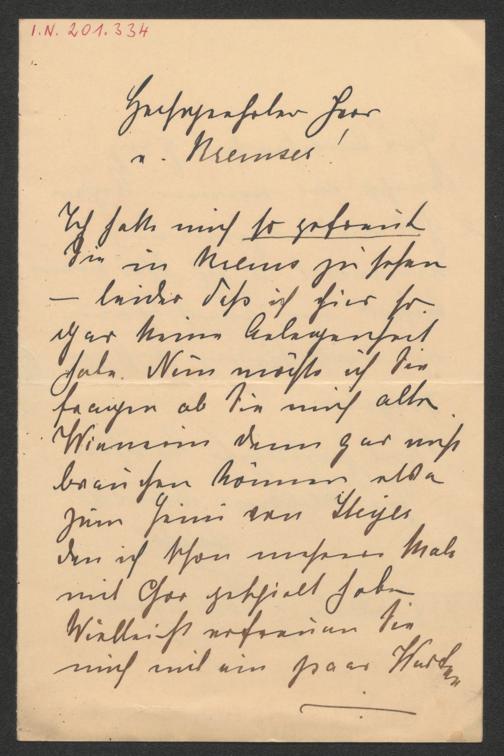 I.N. 201.334
Hochverehrter Herr
v. Kremser!
Ich hatte mich so gefreut
Sie in Krems zu sehen
— leider daß ich hier so
gar keine Gelegenheit
habe. Nun möchte ich Sie
fragen ob Sie mich alte
Wienerin denn gar nicht
brauchen können etwa
zum von
den ich schon mehrere Male
mit Chor gespielt habe
Vielleicht erfreuen Sie
mich mit ein paar Worten